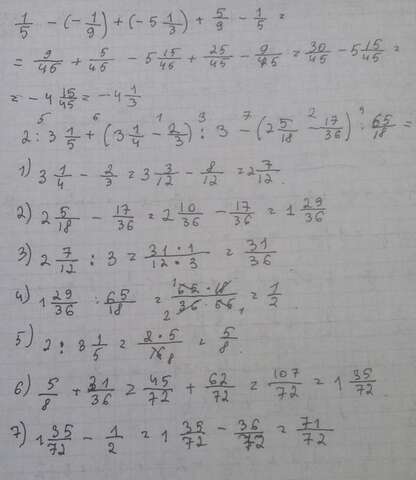 1/5 - (-1/9) + (-5 1/3) + 5/9 - 1/5 =
= 9/45 + 5/45 - 5 15/45 + 25/45 - 9/45 = 30/45 - 5 15/45 =
= -4 15/45 = -4 1/3
5 6 1 3 7 2 4
2 : 3 1/5 + (3 1/4 - 2/3) : 3 - (2 5/18 - 17/36) : 65/18 =
1) 3 1/4 - 2/3 = 3 3/12 - 8/12 = 2 7/12.
2) 2 5/18 - 17/36 = 2 10/36 - 17/36 = 1 29/36
3) 2 7/12 : 3 = 31·1/12·3 = 31/36
4) 1 29/36 : 65/18 = 65·18/36·65 = 1/2
5) 2 : 3 1/5 = 2·5/16 8 = 5/8.
6) 5/8 + 31/36 = 45/72 + 62/72 = 107/72 = 1 35/72.
7) 1 35/72 - 1/2 = 1 35/72 - 36/72 = 71/72